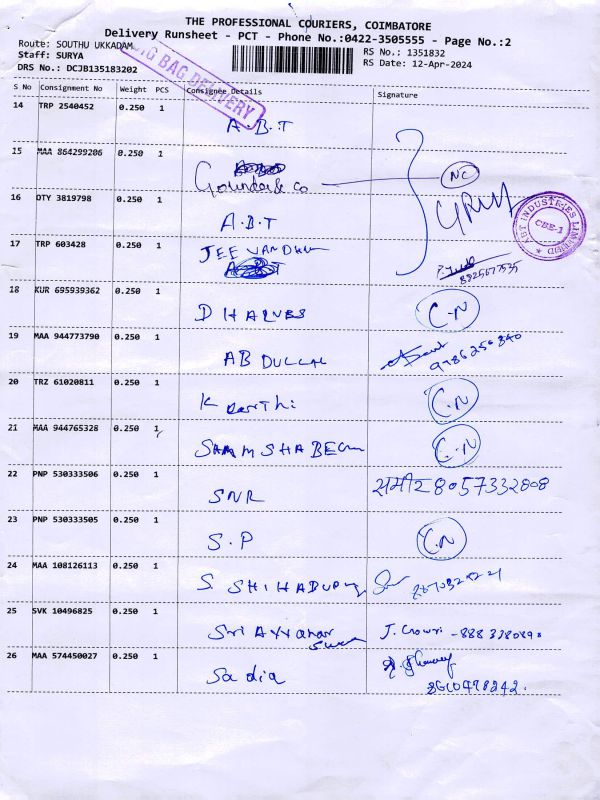 THE PROFESSIONAL COURIERS, COIMBATORE
Delivery Runsheet - PCT - Phone No.:0422-3505555 - Page No.:2
Route: SOUTHU UKKADAM
Staff: SURYA
DRS No.: DCJB135183202
RS No.: 1351832
RS Date: 12-Apr-2024
BAG DELIVERY
S No Consignment No Weight PCS Consignee Details Signature
14 TRP 2540452 0.250 1 A.B.T
15 MAA 864299206 0.250 1 & co NC
16 OTY 3819798 0.250 1 A.B.T
ABT INDUSTRIES LIMITED
CBE-1
17 TRP 603428 0.250 1 JEEVANDHU 8825677535
18 KUR 695939362 0.250 1 C-N
19 MAA 944773790 0.250 1 ABDULLAL 9786256340
20 TRZ 61020811 0.250 1 C.N
21 MAA 944765328 0.250 1 C.N
22 PNP 530333506 0.250 1 SNR समीर 8057332808
23 PNP 530333505 0.250 1 S.P C.N
24 MAA 108126113 0.250 1 S.
25 SVK 10496825 0.250 1 Sri Ayyanar J. Gowri -
26 MAA 574450027 0.250 1 Sadia